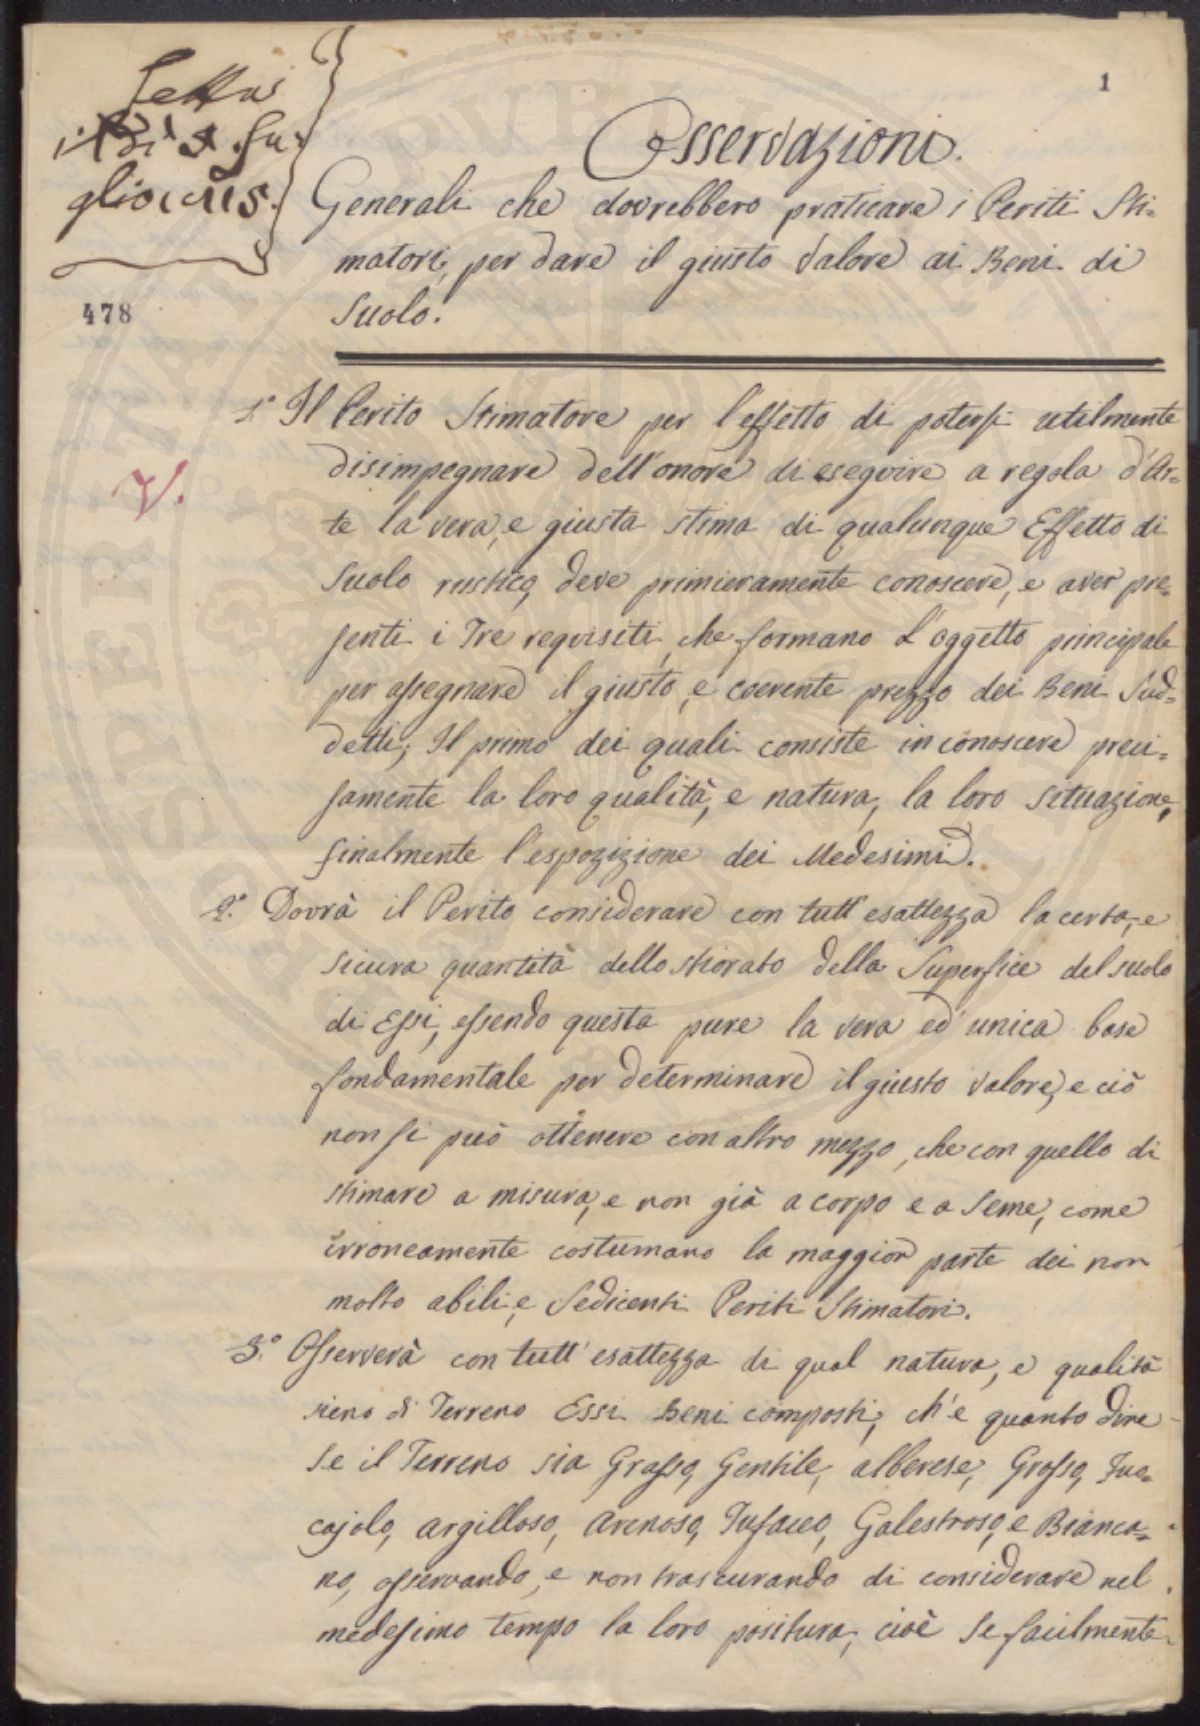 1
Osservazioni.
Generali che dovrebbero praticare i Periti Sti-
matori, per dare il giusto Valore ai Beni di
Suolo.
478
1.° Il Perito Stimatore per l'effetto di potersi utilmente
disimpegnare dell'onore di eseguire a regola d'Ar-
V.
te la vera, e giusta stima di qualunque Effetto di
Suolo rustico, deve primieramente conoscere, e aver pre-
senti i Tre requisiti, che formano l'oggetto principale
per assegnare il giusto, e coerente prezzo dei Beni Sud-
detti; Il primo dei quali consiste in conoscere preci-
samente la loro qualità, e natura, la loro situazione,
finalmente l'espozizione dei Medesimi.
2.° Dovrà il Perito considerare con tutt'esattezza la certa, e
sicura quantità dello stiorato della Superfice del suolo
di Essi, essendo questa pure la vera ed unica base
fondamentale per determinare il giusto valore, e ciò
non si può ottenere con altro mezzo, che con quello di
stimare a misura, e non già a corpo e a Seme, come
irroneamente costumano la maggior parte dei non
molto abili, e Sedicenti Periti Stimatori.
3.° Osserverà con tutt'esattezza di qual natura, e qualità
sieno di Terreno Essi Beni composti, ch'è quanto dire
Se il Terreno sia Grasso, Gentile, alberese, Grosso, Tu-
cajolo, argilloso, arenoso, Tufaceo, Galestroso, e Bianca-
no, osservando, e non trascurando di considerare nel
medesimo tempo la loro positura, cioè Se facilmente